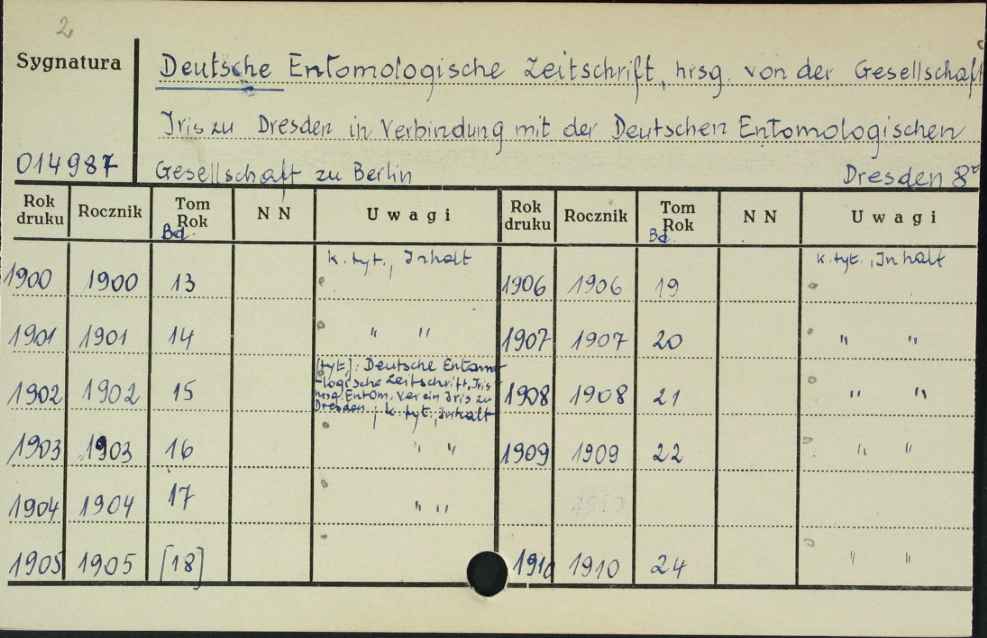 2
Sygnatura
Deutsche Entomologische Zeitschrift, hrsg. von der Gesellschaft
Iris zu Dresden in Verbindung mit der Deutschen Entomologischen
014987 Gesellschaft zu Berlin Dresden 8°
Rok druku Rocznik Tom Rok Bd. NN Uwagi Rok druku Rocznik Tom Rok Bd. NN Uwagi
1900 1900 13 k. tyt., Inhalt 1906 1906 19 k. tyt., Inhalt
1901 1901 14 " " 1907 1907 20 " "
1902 1902 15 [tyt.]: Deutsche Entomo-
-logische Zeitschrift, Iris
hrsg. Entom. Verein Iris zu
Dresden; k. tyt., Inhalt 1908 1908 21 " "
1903 1903 16 " " 1909 1909 22 " "
1904 1904 17 " "
1905 1905 [18] 1910 1910 24 " "